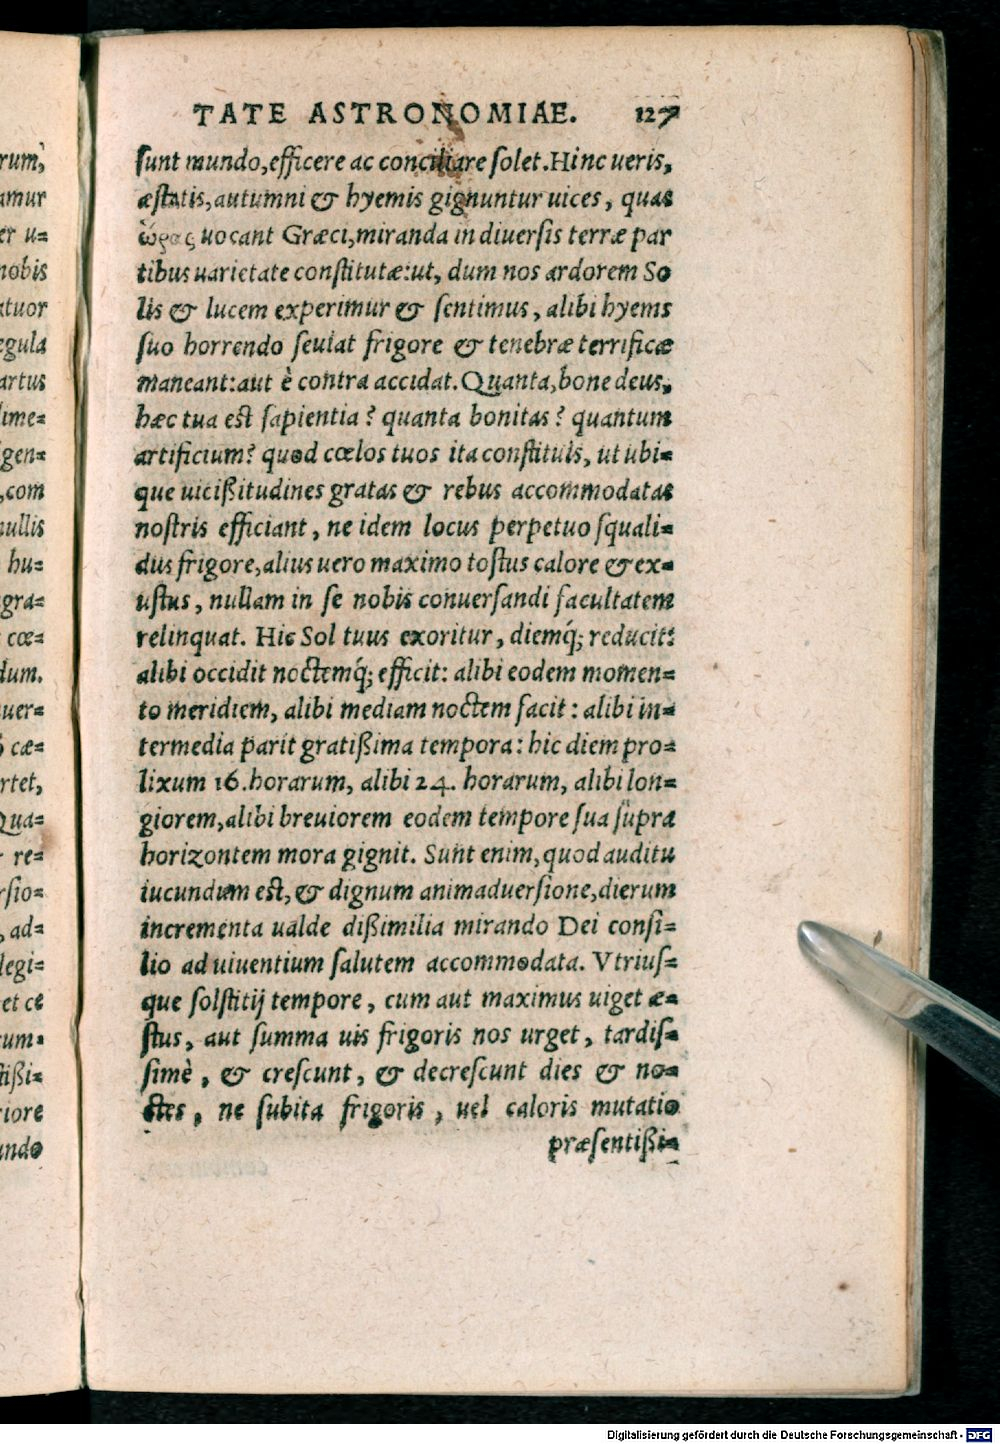 TATE ASTRONOMIAE. 127
sunt mundo, efficere ac conciliare solet. Hinc ueris,
æstatis, autumni & hyemis gignuntur uices, quas
ὥρας uocant Græci, miranda in diuersis terræ par
tibus uarietate constitutæ: ut, dum nos ardorem So
lis & lucem experimur & sentimus, alibi hyems
suo horrendo seuiat frigore & tenebræ terrificæ
maneant: aut è contra accidat. Quanta, bone deus,
hæc tua est sapientia? quanta bonitas? quantum
artificium? quod cœlos tuos ita constituis, ut ubi=
que uicißitudines gratas & rebus accommodatas
nostris efficiant, ne idem locus perpetuo squali=
dus frigore, alius uero maximo tostus calore & ex=
ustus, nullam in se nobis conuersandi facultatem
relinquat. Hic Sol tuus exoritur, diemq́; reducit:
alibi occidit noctemq́; efficit: alibi eodem momen=
to meridiem, alibi mediam noctem facit: alibi in=
termedia parit gratißima tempora: hic diem pro=
lixum 16. horarum, alibi 24. horarum, alibi lon=
giorem, alibi breuiorem eodem tempore sua supra
horizontem mora gignit. Sunt enim, quod auditu
iucundum est, & dignum animaduersione, dierum
incrementa ualde dißimilia mirando Dei consi=
lio ad uiuentium salutem accommodata. Vtrius=
que solstitij tempore, cum aut maximus uiget æ=
stus, aut summa uis frigoris nos urget, tardis=
simè, & crescunt, & decrescunt dies & no=
ctes, ne subita frigoris, uel caloris mutatio
præsentißi=
rum,
amur
er u=
nobis
atuor
egula
artus
lime=
gen=
, com
nullis
hu=
gra=
cœ=
dum.
uer=
cæ=
rtet,
Qua=
re=
rsio=
, ad=
legi=
et ce
cum=
tißi=
riore
ando
Digitalisierung gefördert durch die Deutsche Forschungsgemeinschaft - DFG